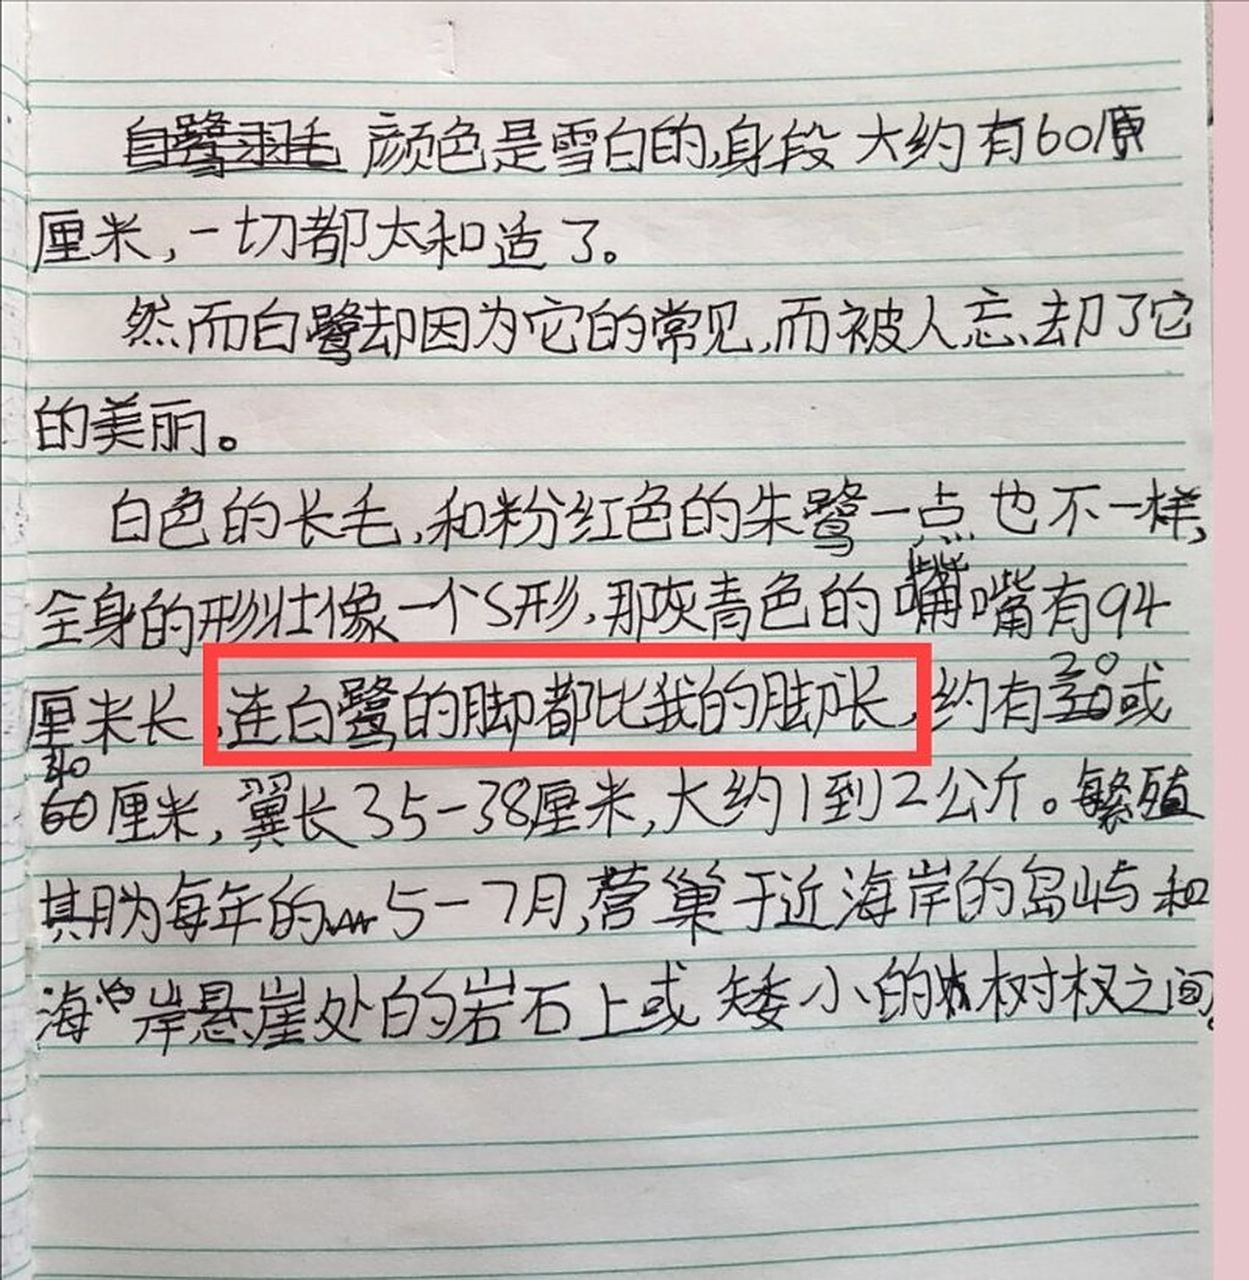 白鹭羽毛 颜色是雪白的,身段大约有60厚
厘米,一切都太和适了。
然而白鹭却因为它的常见,而被人忘却了它
的美丽。
白色的长毛,和粉红色的朱鹭一点也不一样,
全身的形壮像一个S形,那灰青色的嘴有94
厘米长,连白鹭的脚都比我的脚长,约有20或
40厘米,翼长35-38厘米,大约1到2公斤。繁殖
其月为每年的5-7月,营巢于近海岸的岛屿和
海岸悬崖处的岩石上或矮小的树杈之间。